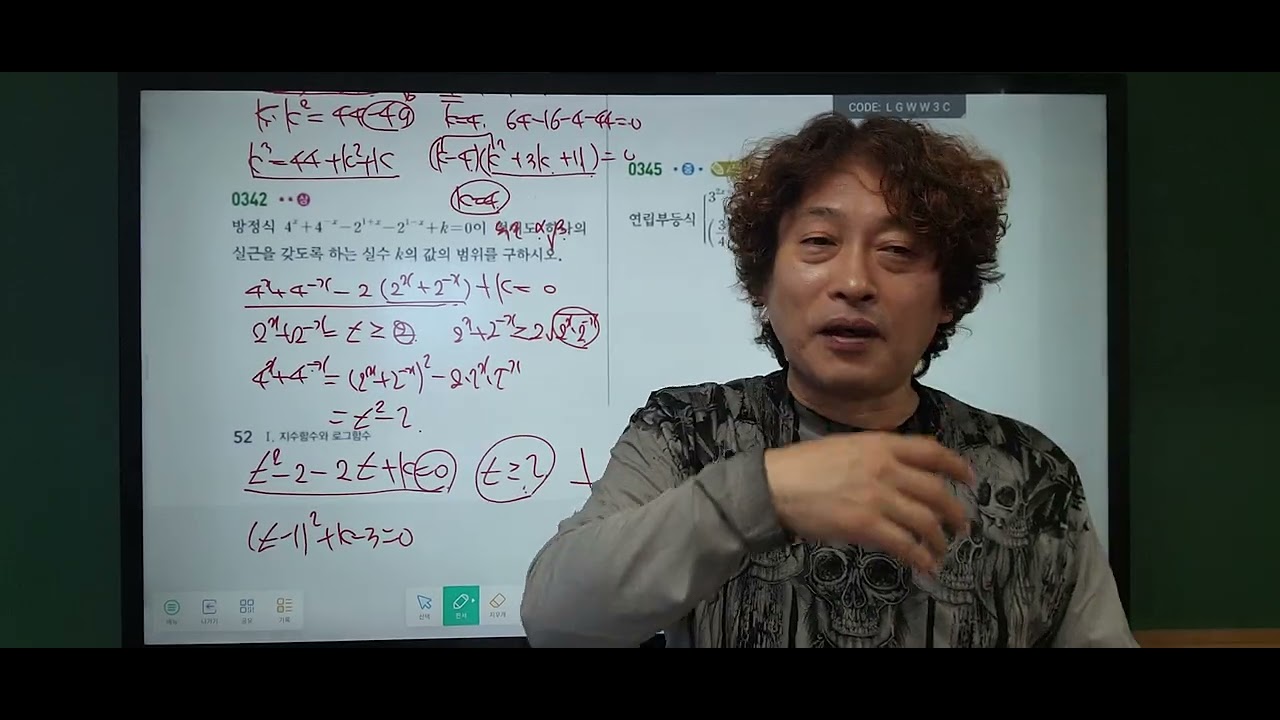 CODE: L G W W 3 C
k·k²=44-4a
k=4. 64-16-4-44=0
k³=44+k²+k
(k-4)(k²+3k+11)=0
k=4
0342 상
방정식 4ˣ+4⁻ˣ-2¹⁺ˣ-2¹⁻ˣ+k=0이
실근을 갖도록 하는 실수 k의 값의 범위를 구하시오.
4ˣ+4⁻ˣ-2(2ˣ+2⁻ˣ)+k=0
2ˣ+2⁻ˣ=t≥2 2ˣ+2⁻ˣ≥2√2ˣ·2⁻ˣ
4ˣ+4⁻ˣ=(2ˣ+2⁻ˣ)²-2·2ˣ·2⁻ˣ
=t²-2.
52 Ⅰ. 지수함수와 로그함수
t²-2-2t+k=0 t≥2
(t-1)²+k-3=0
메뉴 나가기 공유 기록 선택 판서 지우개
0345 중
연립부등식